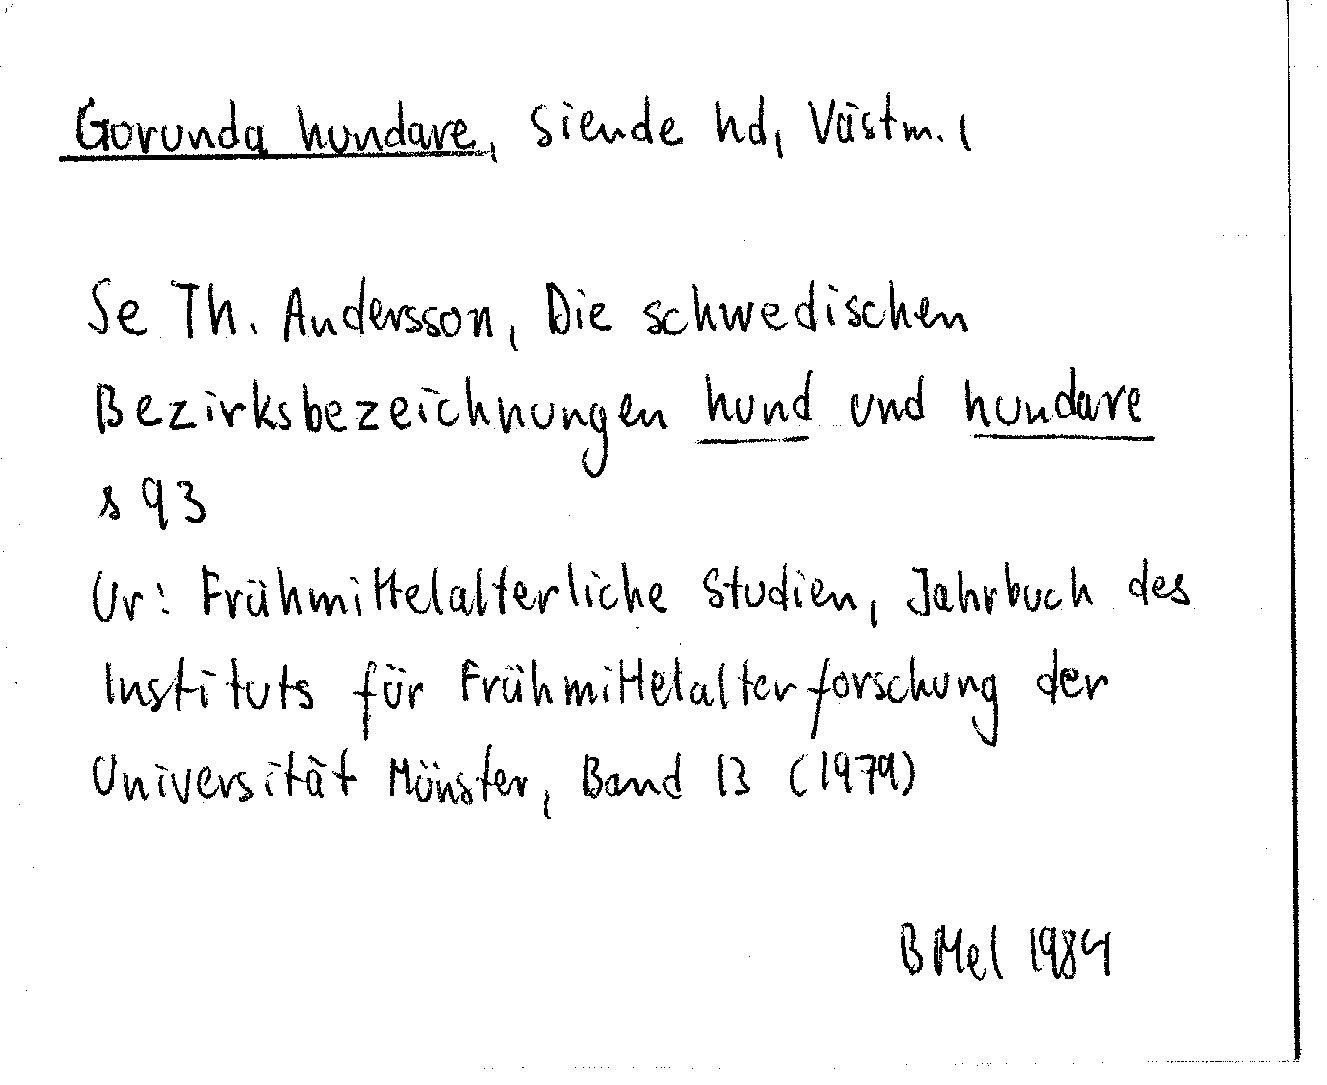 Gorunda hundare, Siende hd, Västm. l
Se Th. Andersson, Die schwedischen
Bezirksbezeichnungen hund und hundare
s 93
Ur: Frühmittelalterliche Studien, Jahrbuch des
Instituts für Frühmittelalterforschung der
Universität Münster, Band 13 (1979)
BMel 1984